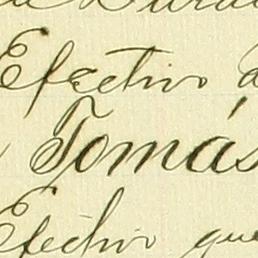 Efectivo
Tomás
Efectivo que